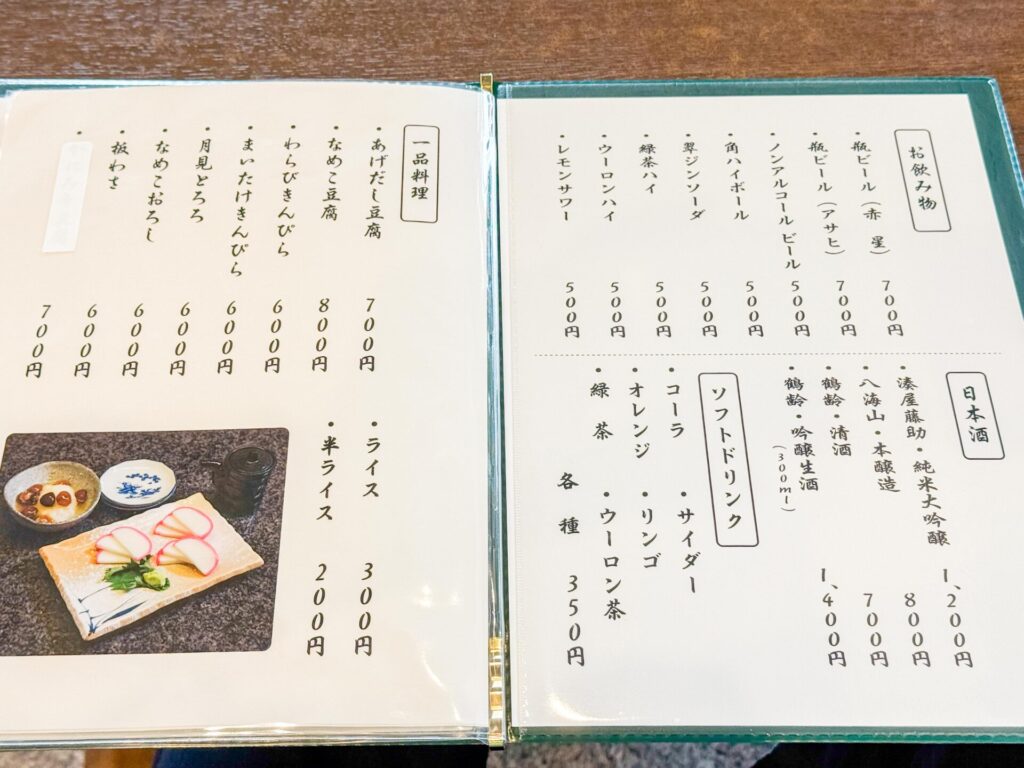 お飲み物
・瓶ビール（赤 星） 700円
・瓶ビール（アサヒ） 700円
・ノンアルコールビール 500円
・角ハイボール 500円
・翠ジンソーダ 500円
・緑茶ハイ 500円
・ウーロンハイ 500円
・レモンサワー 500円
日本酒
・湊屋藤助・純米大吟醸 1,200円
・八海山・本醸造 800円
・鶴齢・清酒 700円
・鶴齢・吟醸生酒 1,400円
（300ml）
ソフトドリンク
・コーラ ・サイダー
・オレンジ ・リンゴ
・緑 茶 ・ウーロン茶
各 種 350円
一品料理
・あげだし豆腐 700円
・なめこ豆腐 800円
・わらびきんぴら 600円
・まいたけきんぴら 600円
・月見とろろ 600円
・なめこおろし 600円
・板わさ 600円
・ 700円
・ライス 300円
・半ライス 200円